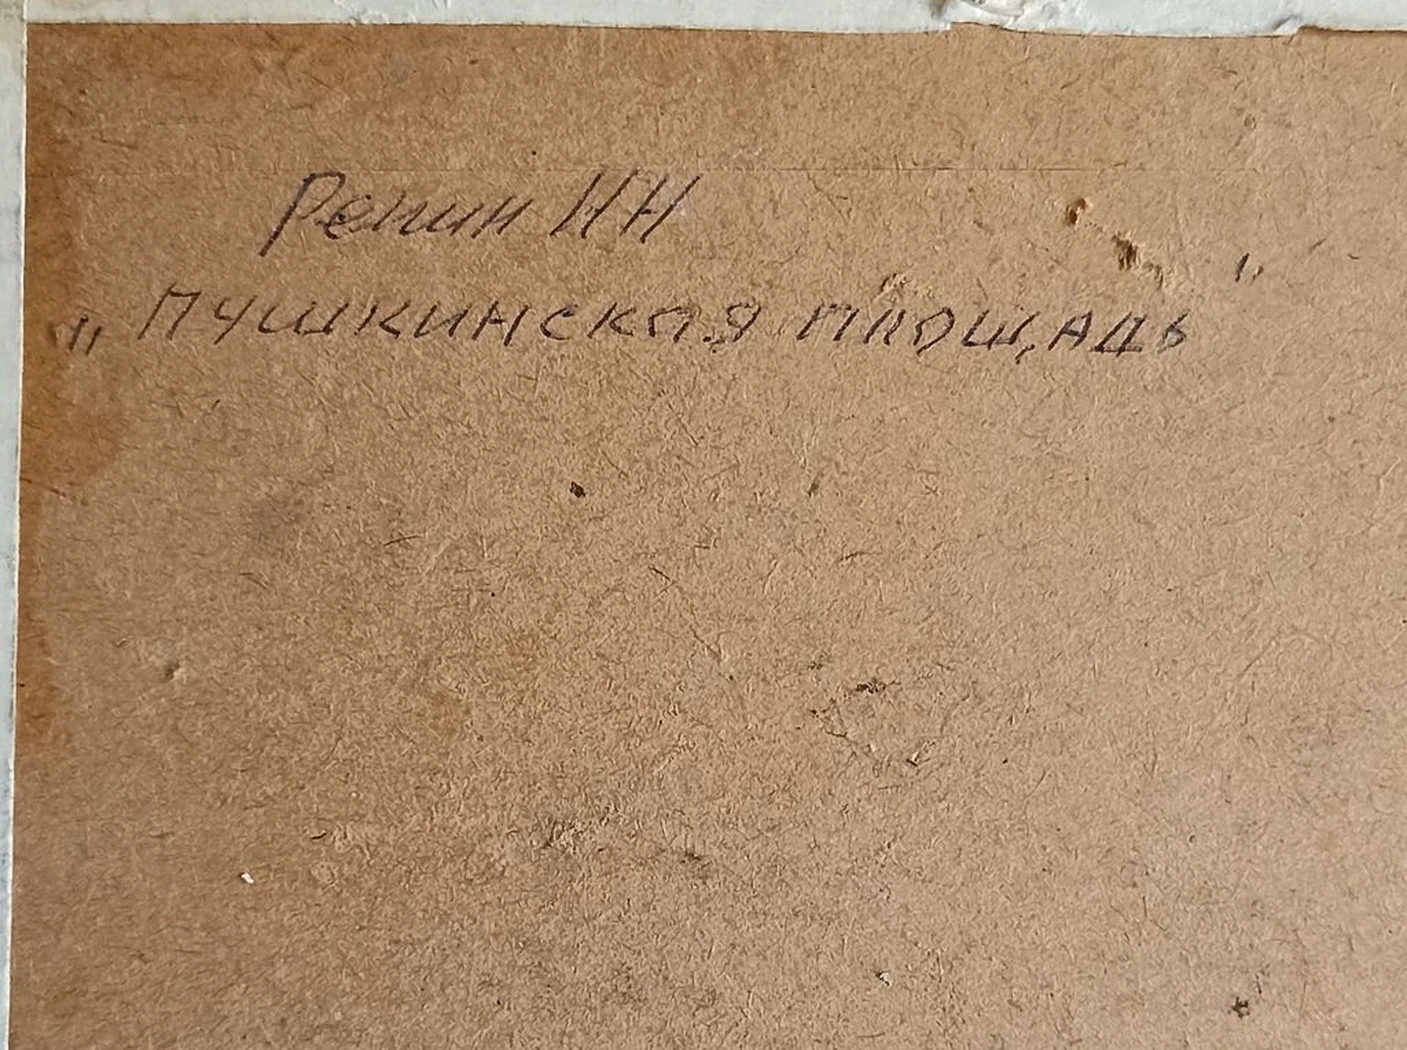 Репин НН
„Пушкинская площадь"